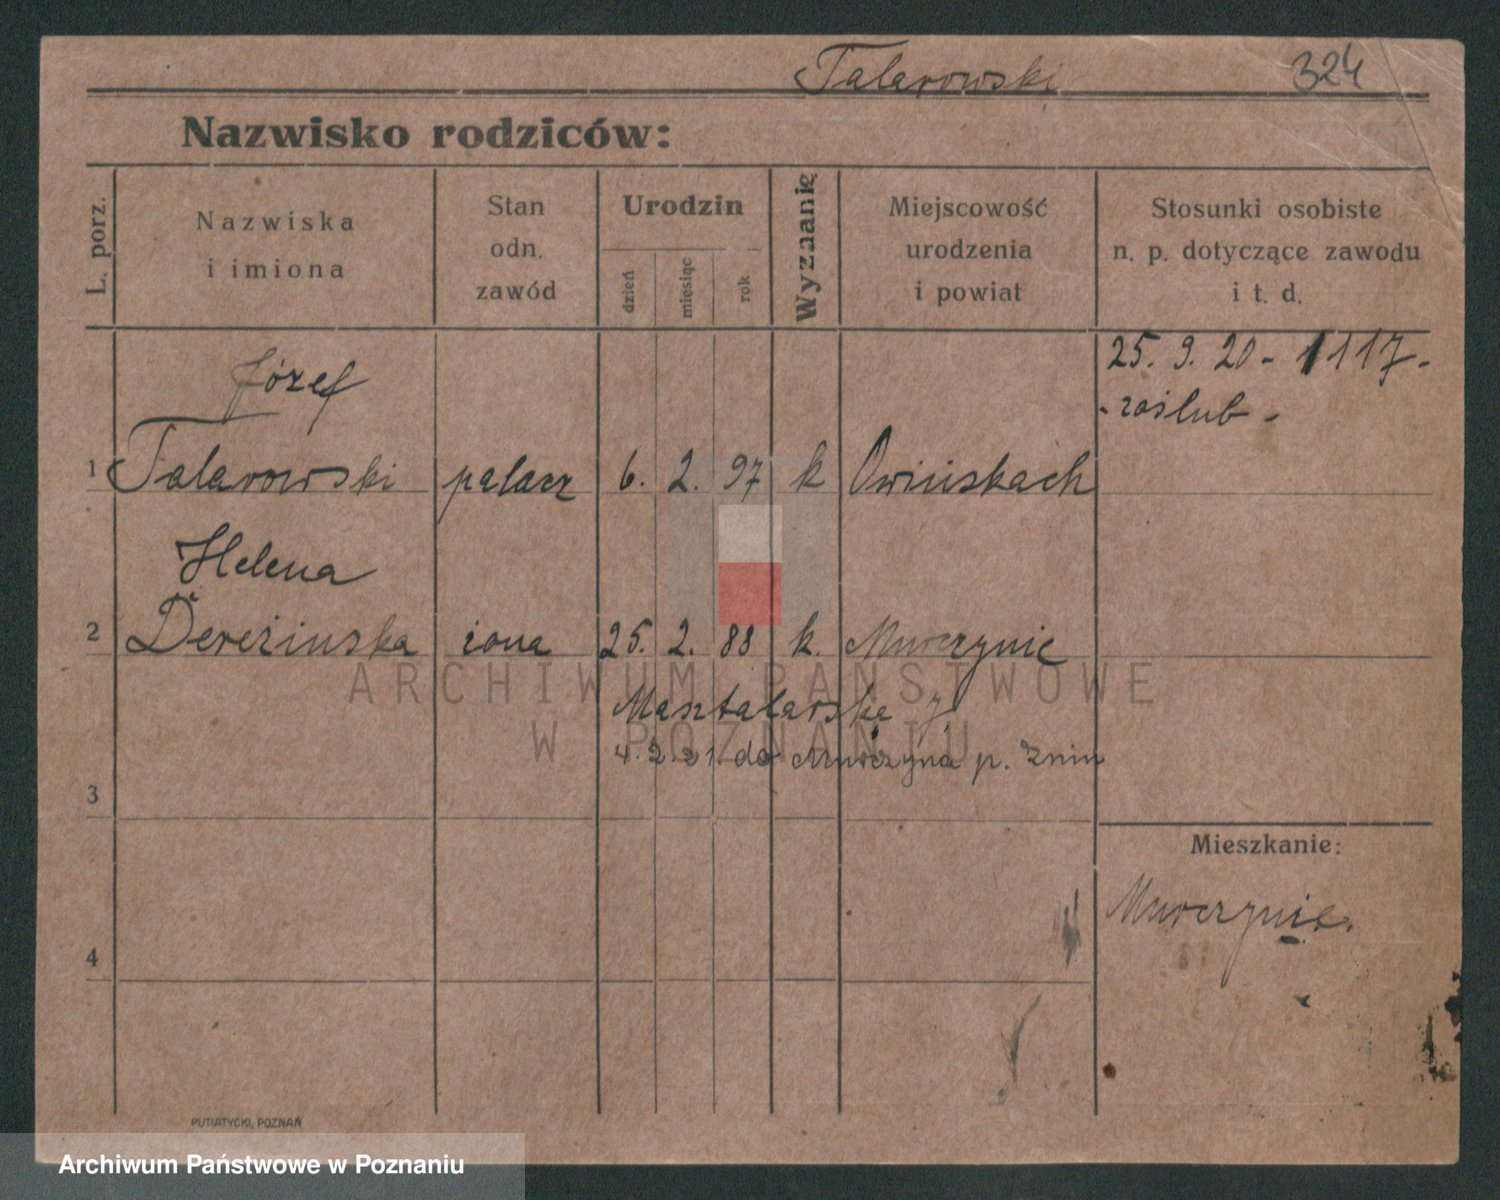 Talarowski 324
Nazwisko rodziców:
L. porz.
Nazwiska
i imiona
Stan
odn.
zawód
Urodzin
dzień
miesiąc
rok
Wyznanię
Miejscowość
urodzenia
i powiat
Stosunki osobiste
n. p. dotyczące zawodu
i t. d.
25. 9. 20 - 1117 -
- zaślub -
Józef
1 Talarowski palacz 6. 2. 97 k Owińskach
Helena
2 Dereżinska żona 25. 2. 88 k. Murczynie
ARCHIWUM PAŃSTWOWE
W POZNANIU
Masztalarska 7
4. 2. 21. do Murczyna p. Żnin
3
Mieszkanie:
Murczynie.
4
PUTIATYCKI, POZNAŃ
Archiwum Państwowe w Poznaniu